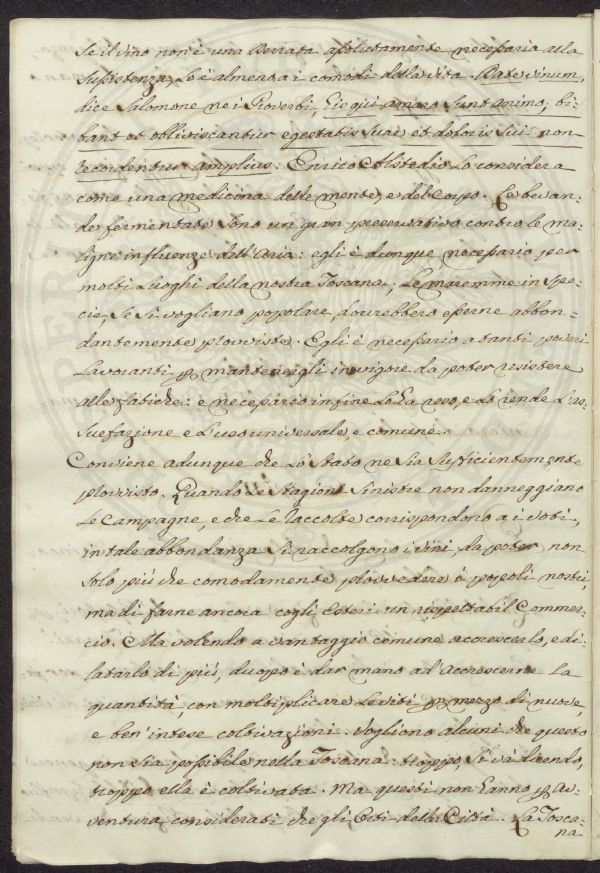 Se il vino non è una Derrata assolutamente necessaria alla
Sussistenza, lo è almeno a i comodi della vita. Date vinum,
dice Salomone ne i Proverbi, His qui amaro sunt animo; bi-
bant et obliviscantur egestatis suae et doloris sui non
recordentur amplius: Enrico Alstedio lo considera
come una medicina della mente, e del Corpo. Le bevan-
de fermentate sono un gran preservativo contro le ma-
ligne influenze dell'Aria: egli è dunque necessario per
molti Luoghi della nostra Toscana; Le maremme in spe-
cie, se si vogliano popolare, dovrebbero esserne abbon-
dantemente provviste. Egli è necessario a tanti poveri
Lavoranti p mantenergli in vigore da poter resistere
alle fatiche: e necessario in fine lo ha reso, e lo rende l'as-
suefazione e l'uso universale, e comune.
Conviene adunque che lo stato ne sia sufficientemente
provvisto. Quando le stagioni sinistre non danneggiano
le Campagne, e che le raccolte corrispondono a i voti,
in tale abbondanza si raccolgono i vini da poter non
solo più che comodamente provvedere à popoli nostri,
ma di farne ancora cogli Esteri un rispettabil Commer-
cio. Ma volendo a vantaggio comune accrescerlo, e di-
latarlo di più, duopo è dar mano ad'Accrescerne la
quantità, con moltiplicare le viti p mezzo di nuove,
e ben'intese coltivazioni. Vogliono alcuni che questo
non sia possibile nella Toscana: troppo, si và dicendo,
troppo ella è coltivata. Ma questi non hanno p Av-
ventura considerati che gli Orti della Città. La Tosca-
na